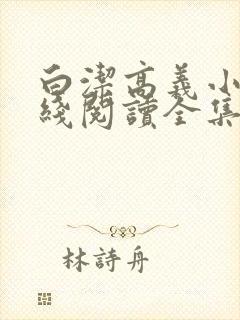 白潔高義小
綫閱讀全集
林詩舟